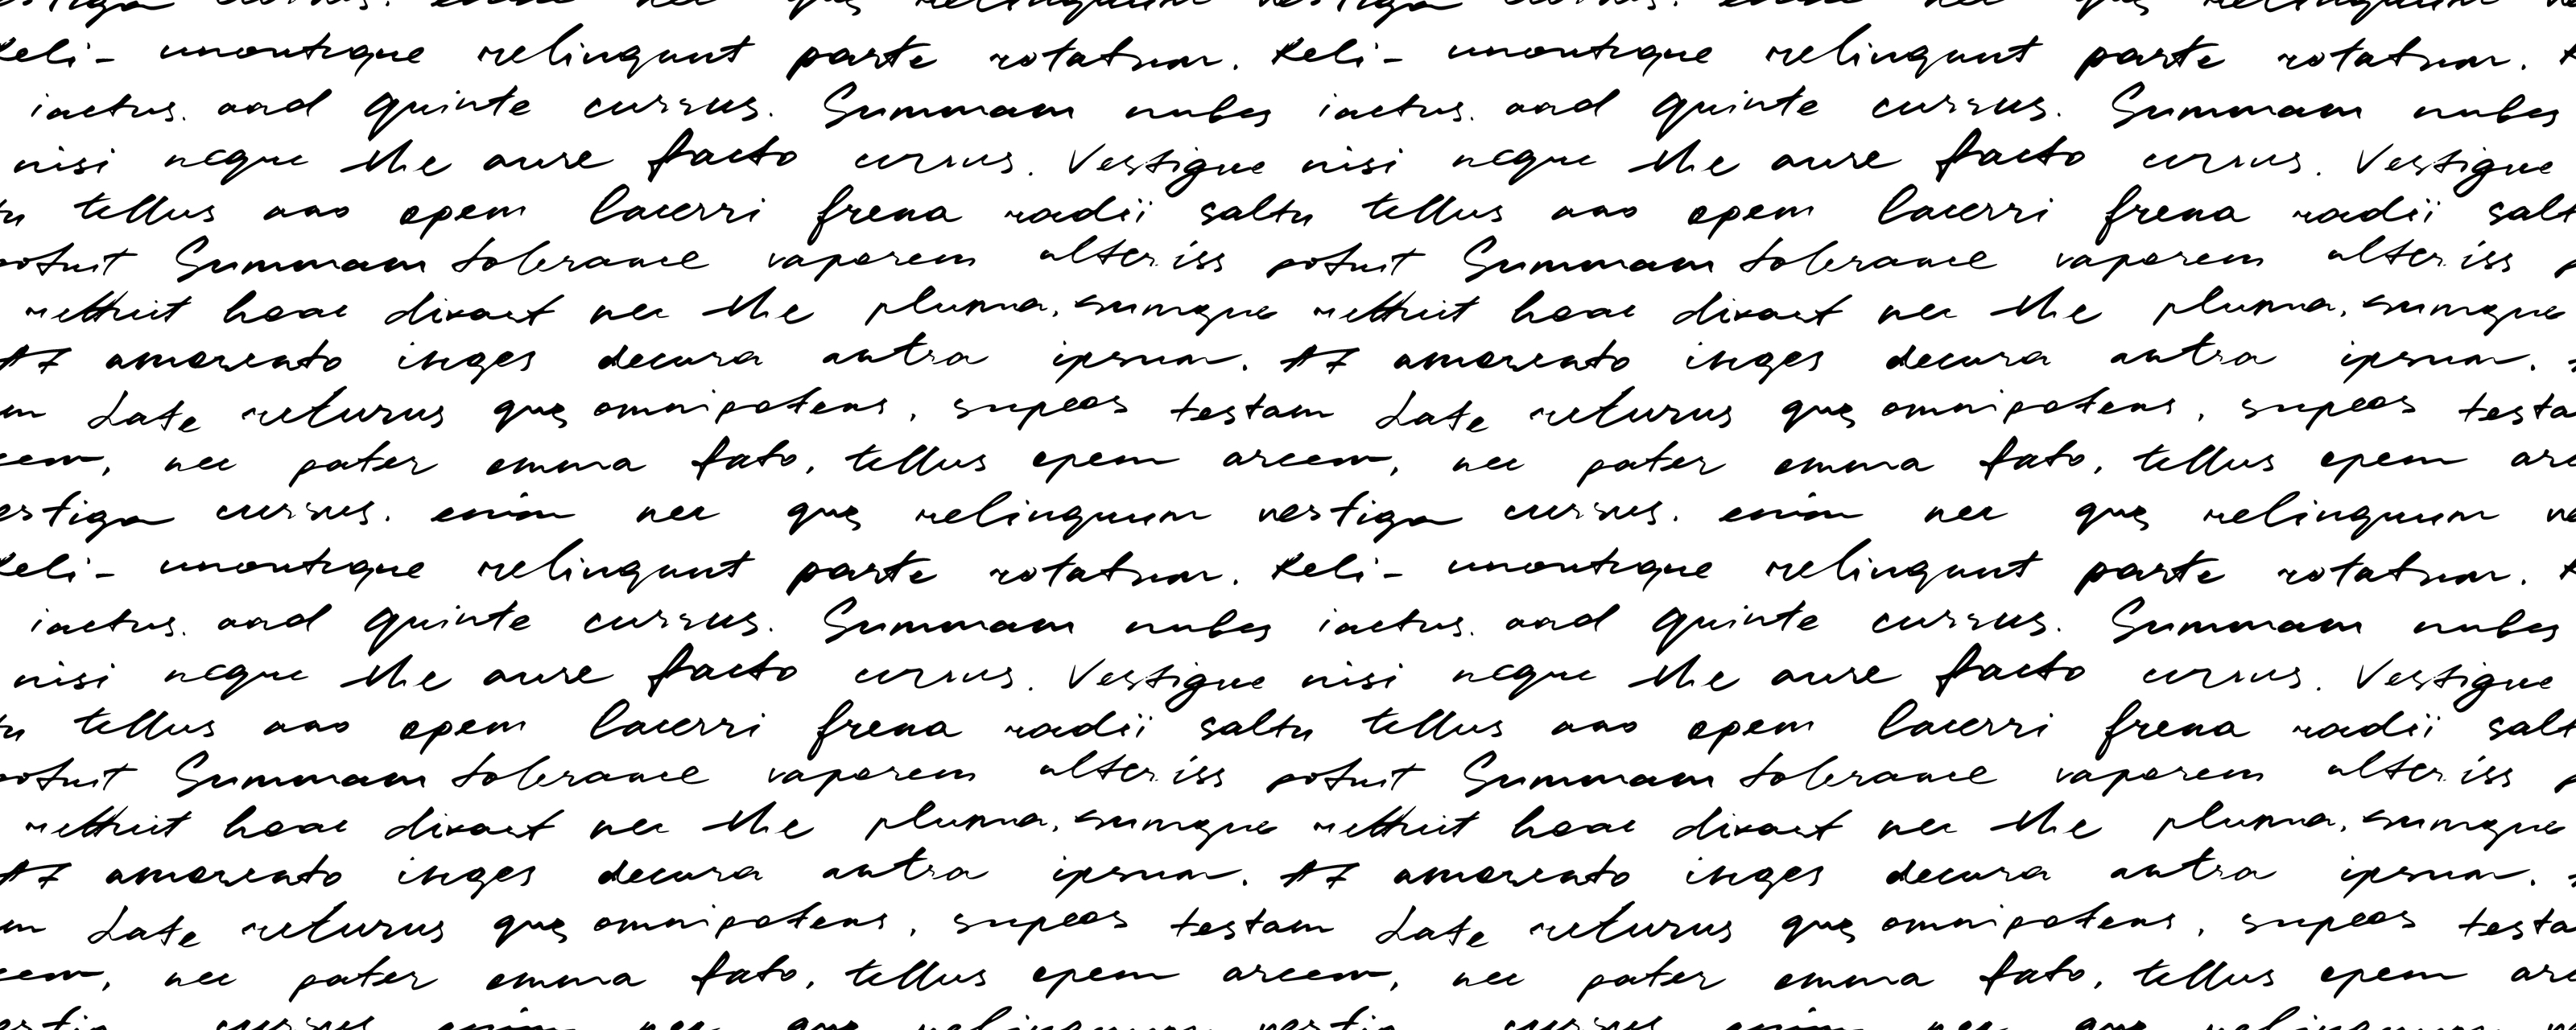 relinquum vestiga cursus. enim nec que relinquum
Reli- unontique relinqunt parte rotatum. Reli- unontique relinqunt parte rotatum.
iactus. aad quinte cursus. Summam nubes iactus. aad quinte cursus. Summam nubes
nisi neque the aure facto currus. Vestigue nisi neque the aure facto currus. Vestigue
tellus ano opem lacerri frena radii saltu tellus ano opem lacerri frena radii salt
potuit Summam tolerance vaporem alteriss potuit Summam tolerance vaporem alteriss
rettruit heac dixact nec the pluma, sumque rettruit heac dixact nec the pluma, sumque
At amorento inges decura antra ipsum. At amorento inges decura antra ipsum.
Late returus que omnipotens, supeos testam Late returus que omnipotens, supeos testa
nec pater emma fato, tellus opem arcem, nec pater emma fato, tellus opem arc
estiga cursus. enim nec que relinquum vestiga cursus. enim nec que relinquum ve
Reli- unontique relinqunt parte rotatum. Reli- unontique relinqunt parte rotatum.
iactus. aad quinte cursus. Summam nubes iactus. aad quinte cursus. Summam nubes
nisi neque the aure facto currus. Vestigue nisi neque the aure facto currus. Vestigue
tellus ano opem lacerri frena radii saltu tellus ano opem lacerri frena radii salt
potuit Summam tolerance vaporem alteriss potuit Summam tolerance vaporem alteriss
rettruit heac dixact nec the pluma, sumque rettruit heac dixact nec the pluma, sumque
At amorento inges decura antra ipsum. At amorento inges decura antra ipsum.
Late returus que omnipotens, supeos testam Late returus que omnipotens, supeos testa
nec pater emma fato, tellus opem arcem, nec pater emma fato, tellus opem arc